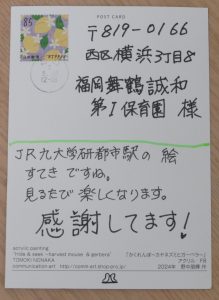 POST CARD
85
〒819-0166
西区横浜3丁目8
福岡舞鶴誠和
第1保育園 様
JR九大学研都市駅の絵
すてきですね。
見るたび楽しくなります。
感謝してます!
acrylic painting
"hide & seek ~harvest mouse & gerbera"
TOMOKI NONAKA
communication art http://comm-art.shop-pro.jp/
「かくれんぼ~カヤネズミとガーベラ~」
アクリル／F8
2024年 野中朋輝 作